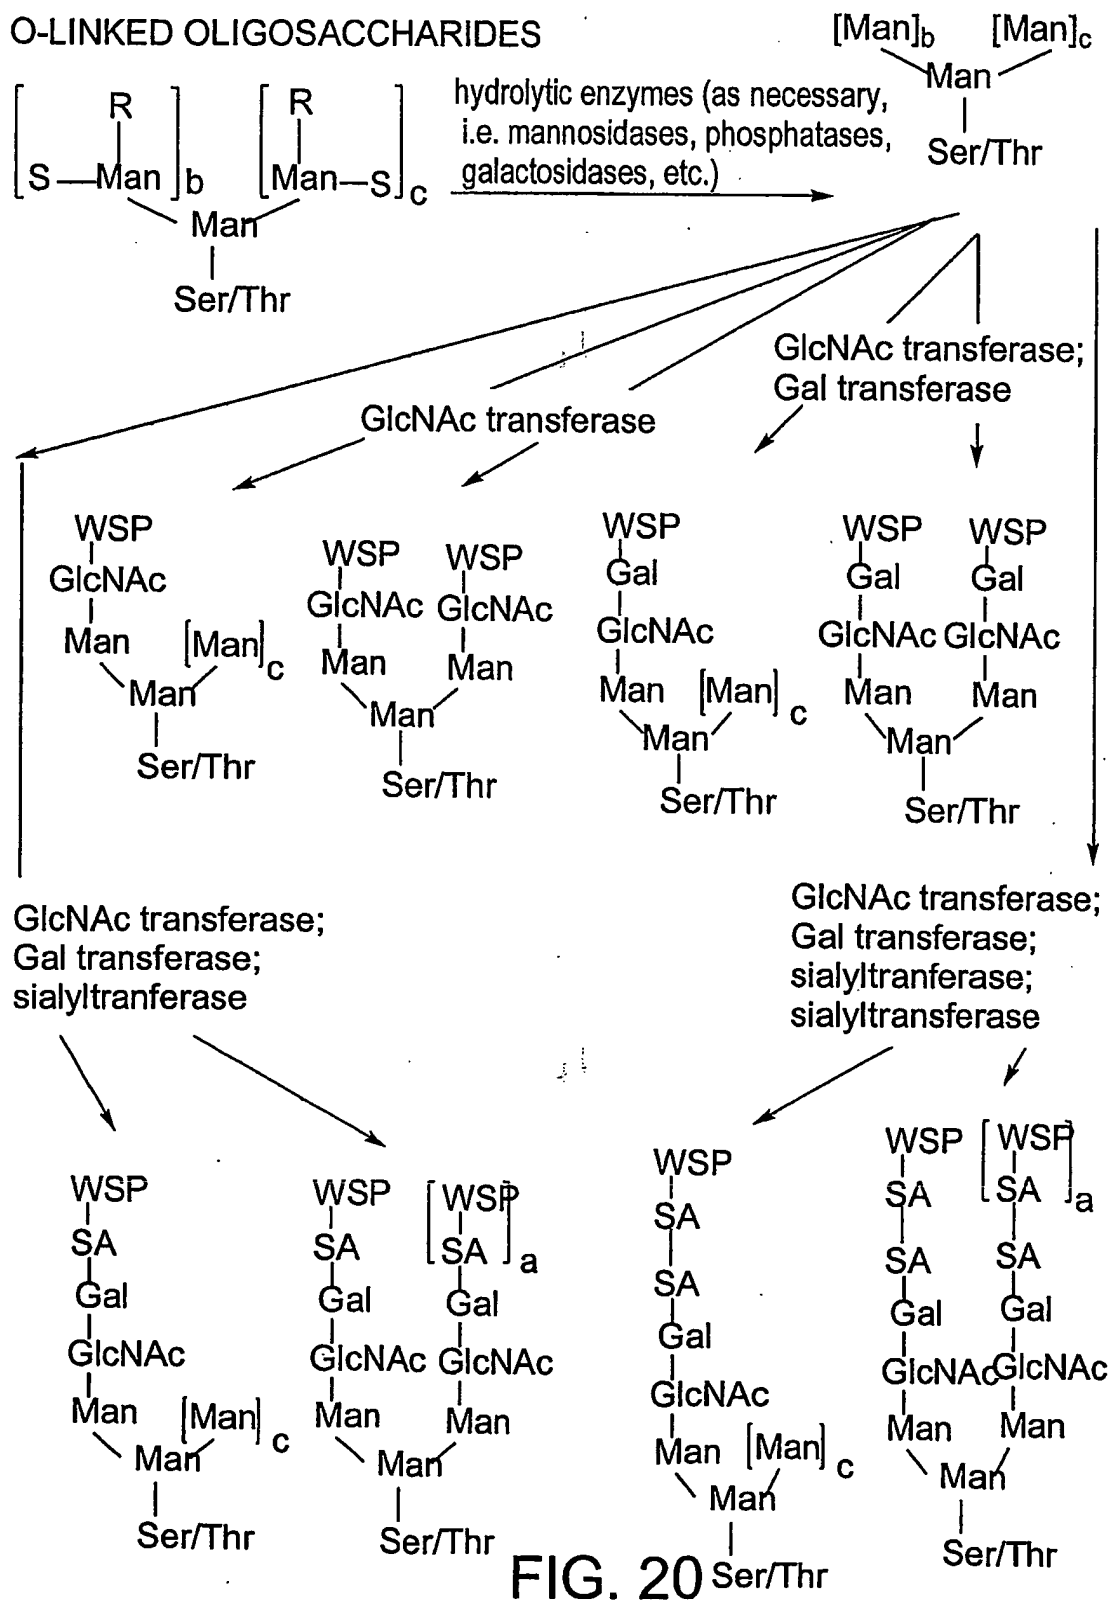 O-LINKED OLIGOSACCHARIDES
[Man]b [Man]c
Man
Ser/Thr
R R
[S—Man]b [Man—S]c
Man
Ser/Thr
hydrolytic enzymes (as necessary,
i.e. mannosidases, phosphatases,
galactosidases, etc.)
GlcNAc transferase;
Gal transferase
GlcNAc transferase
WSP
GlcNAc
Man [Man]c
Man
Ser/Thr
WSP WSP
GlcNAc GlcNAc
Man Man
Man
Ser/Thr
WSP
Gal
GlcNAc
Man [Man]c
Man
Ser/Thr
WSP WSP
Gal Gal
GlcNAc GlcNAc
Man Man
Man
Ser/Thr
GlcNAc transferase;
Gal transferase;
sialyltranferase
GlcNAc transferase;
Gal transferase;
sialyltranferase;
sialyltransferase
WSP
SA
Gal
GlcNAc
Man [Man]c
Man
Ser/Thr
WSP [WSP
SA SA]a
Gal Gal
GlcNAc GlcNAc
Man Man
Man
Ser/Thr
WSP
SA
SA
Gal
GlcNAc
Man [Man]c
Man
Ser/Thr
WSP [WSP
SA SA]a
SA SA
Gal Gal
GlcNAc GlcNAc
Man Man
Man
Ser/Thr
FIG. 20